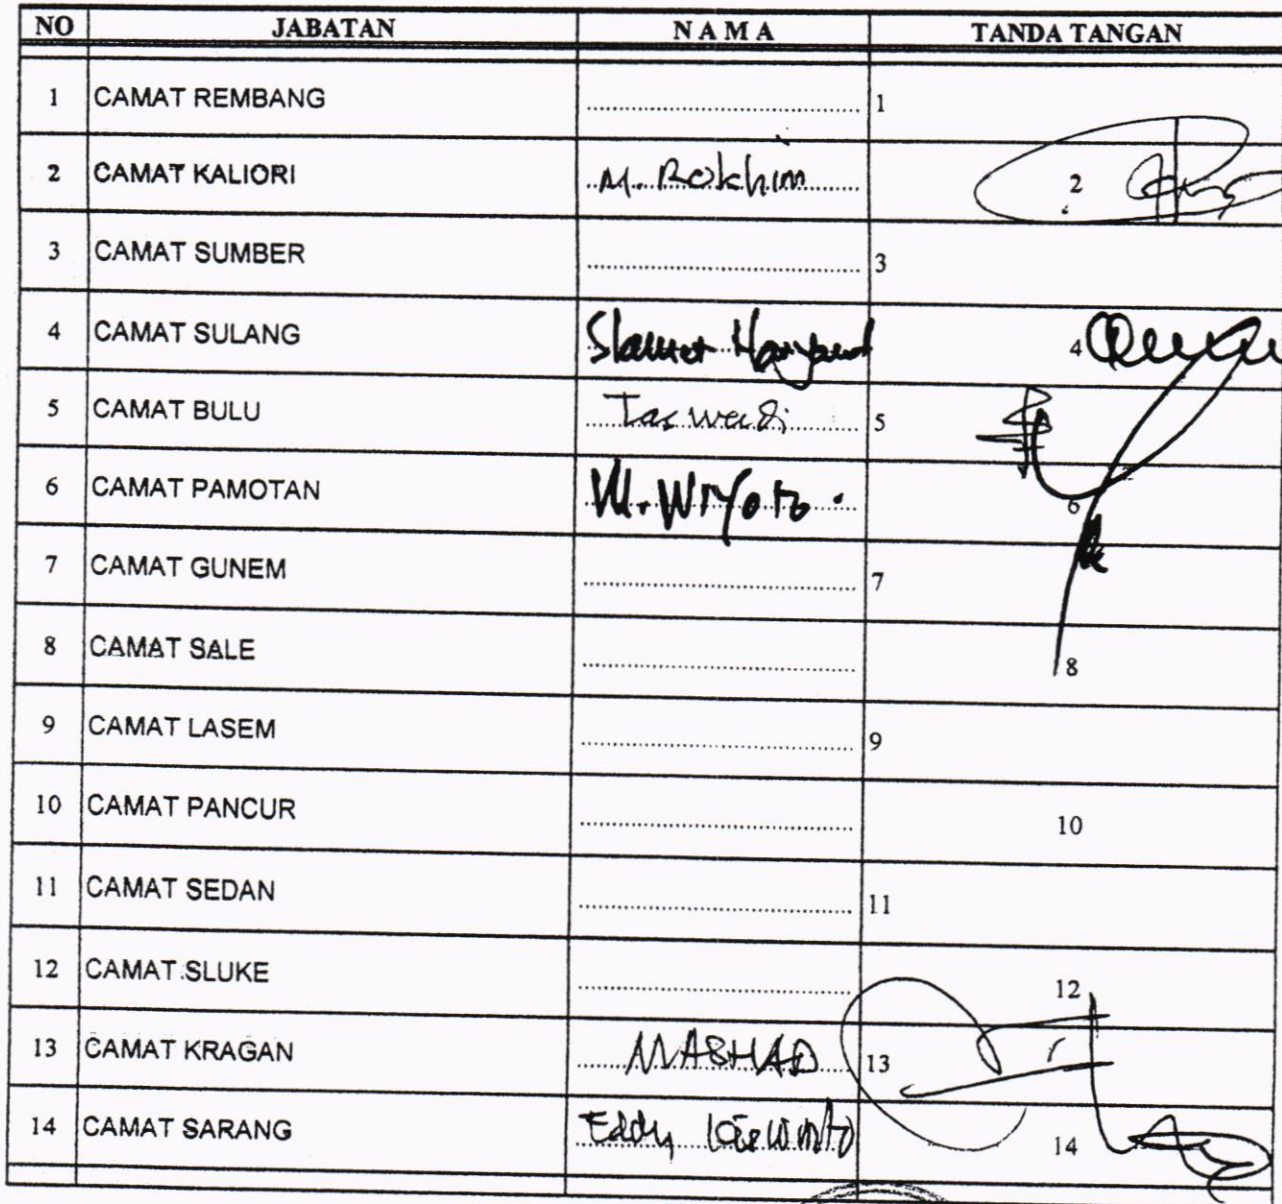 NO JABATAN N A M A TANDA TANGAN
1 CAMAT REMBANG 1
2 CAMAT KALIORI M. Rokhim 2
3 CAMAT SUMBER 3
4 CAMAT SULANG Slamet 4
5 CAMAT BULU Taswadi 5
6 CAMAT PAMOTAN 6
7 CAMAT GUNEM 7
8 CAMAT SALE 8
9 CAMAT LASEM 9
10 CAMAT PANCUR 10
11 CAMAT SEDAN 11
12 CAMAT SLUKE 12
13 CAMAT KRAGAN MASHAD 13
14 CAMAT SARANG Eddy 14